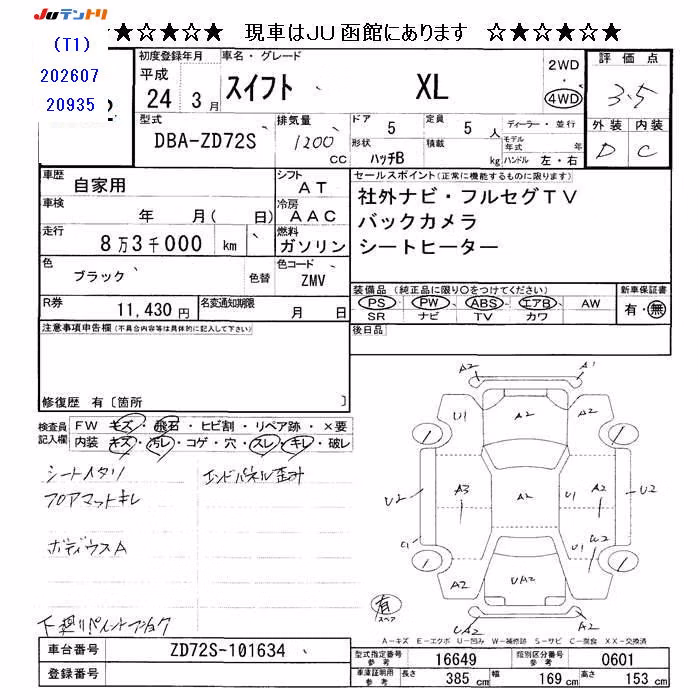 JUテントリ
☆★☆★☆★ 現車はJU函館にあります ☆★☆★☆★
(T1)
202607
20935
初度登録年月 車名・グレード 2WD 評価点
平成 スイフト XL ・ 3.5
24 3月 4WD 外装 内装
型式 排気量 ドア 5 定員 5人 ディーラー・並行 D C
DBA-ZD72S 1200 CC 形状 ハッチB 積載 kg モデル年式 年 ハンドル 左・右
車歴 自家用 シフト AT セールスポイント(正常に機能するものに限ります)
車検 年 月( 日) 冷房 AAC 社外ナビ・フルセグTV
走行 8万3千000 km 燃料 ガソリン バックカメラ
シートヒーター
色 ブラック 色替 色コード ZMV
装備品 (純正品に限り〇をつけてください) 新車保証書
R券 11,430円 名変通知期限 月 日 PS PW ABS エアB AW 有・無
SR ナビ TV カワ
注意事項申告欄(不具合内容等は具体的に記入して下さい) 後日品
修復歴 有〔箇所 〕
検査員記入欄 FW キズ・飛石・ヒビ割・リペア跡・×要
内装 キズ・汚レ・コゲ・穴・スレ・キレ・破レ
シートイタリ エンドパネル歪み
フロアマットキレ
ボディウスA
下廻りペイントアンダーコ
A2 A1
U1 A2 A2
A2
U2 A3 A2 U1 A2 U2
U1 U2
A2 UA2 A2
UA2 A2
有 スペア
A-キズ E-エクボ U-凹み W-補修跡 S-サビ C-腐食 XX-交換済
車台番号 ZD72S-101634 型式指定番号 参考 16649 類別区分番号 参考 0601
登録番号 車庫証明用 参考 長さ 385cm 幅 169cm 高さ 153cm